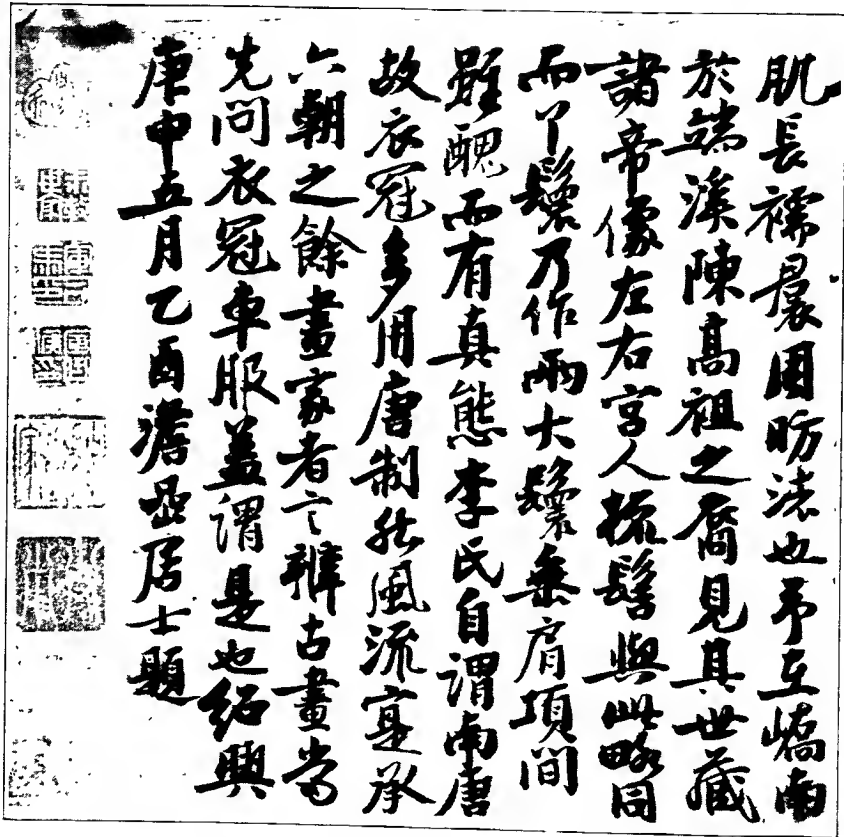 肌長襦裠周昉法也予在嶠南
於端溪陳高祖之裔見其世藏
諸帝像左右宮人梳髻與此略同
而丫鬟乃作兩大鬟垂肩項間
雖醜而有真態李氏自謂南唐
故衣冠多用唐制然風流寔承
六朝之餘畫家者言辨古畫當
先問衣冠車服蓋謂是也紹興
庚申五月乙酉澹嵒居士題